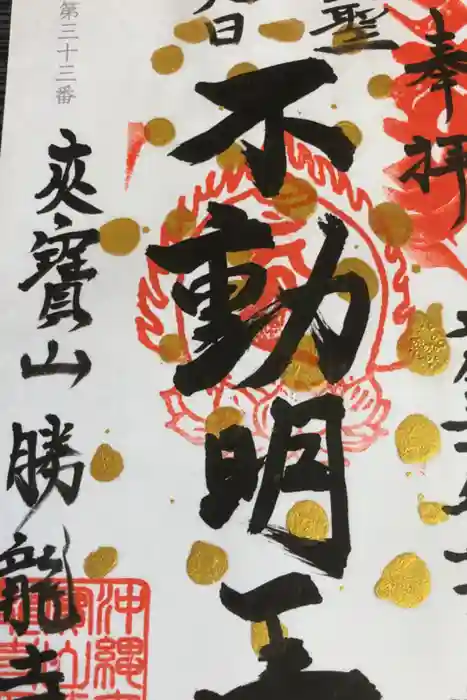 奉拝
聖
九日
不動明王
第三十三番
爽寶山 勝龍寺
沖縄